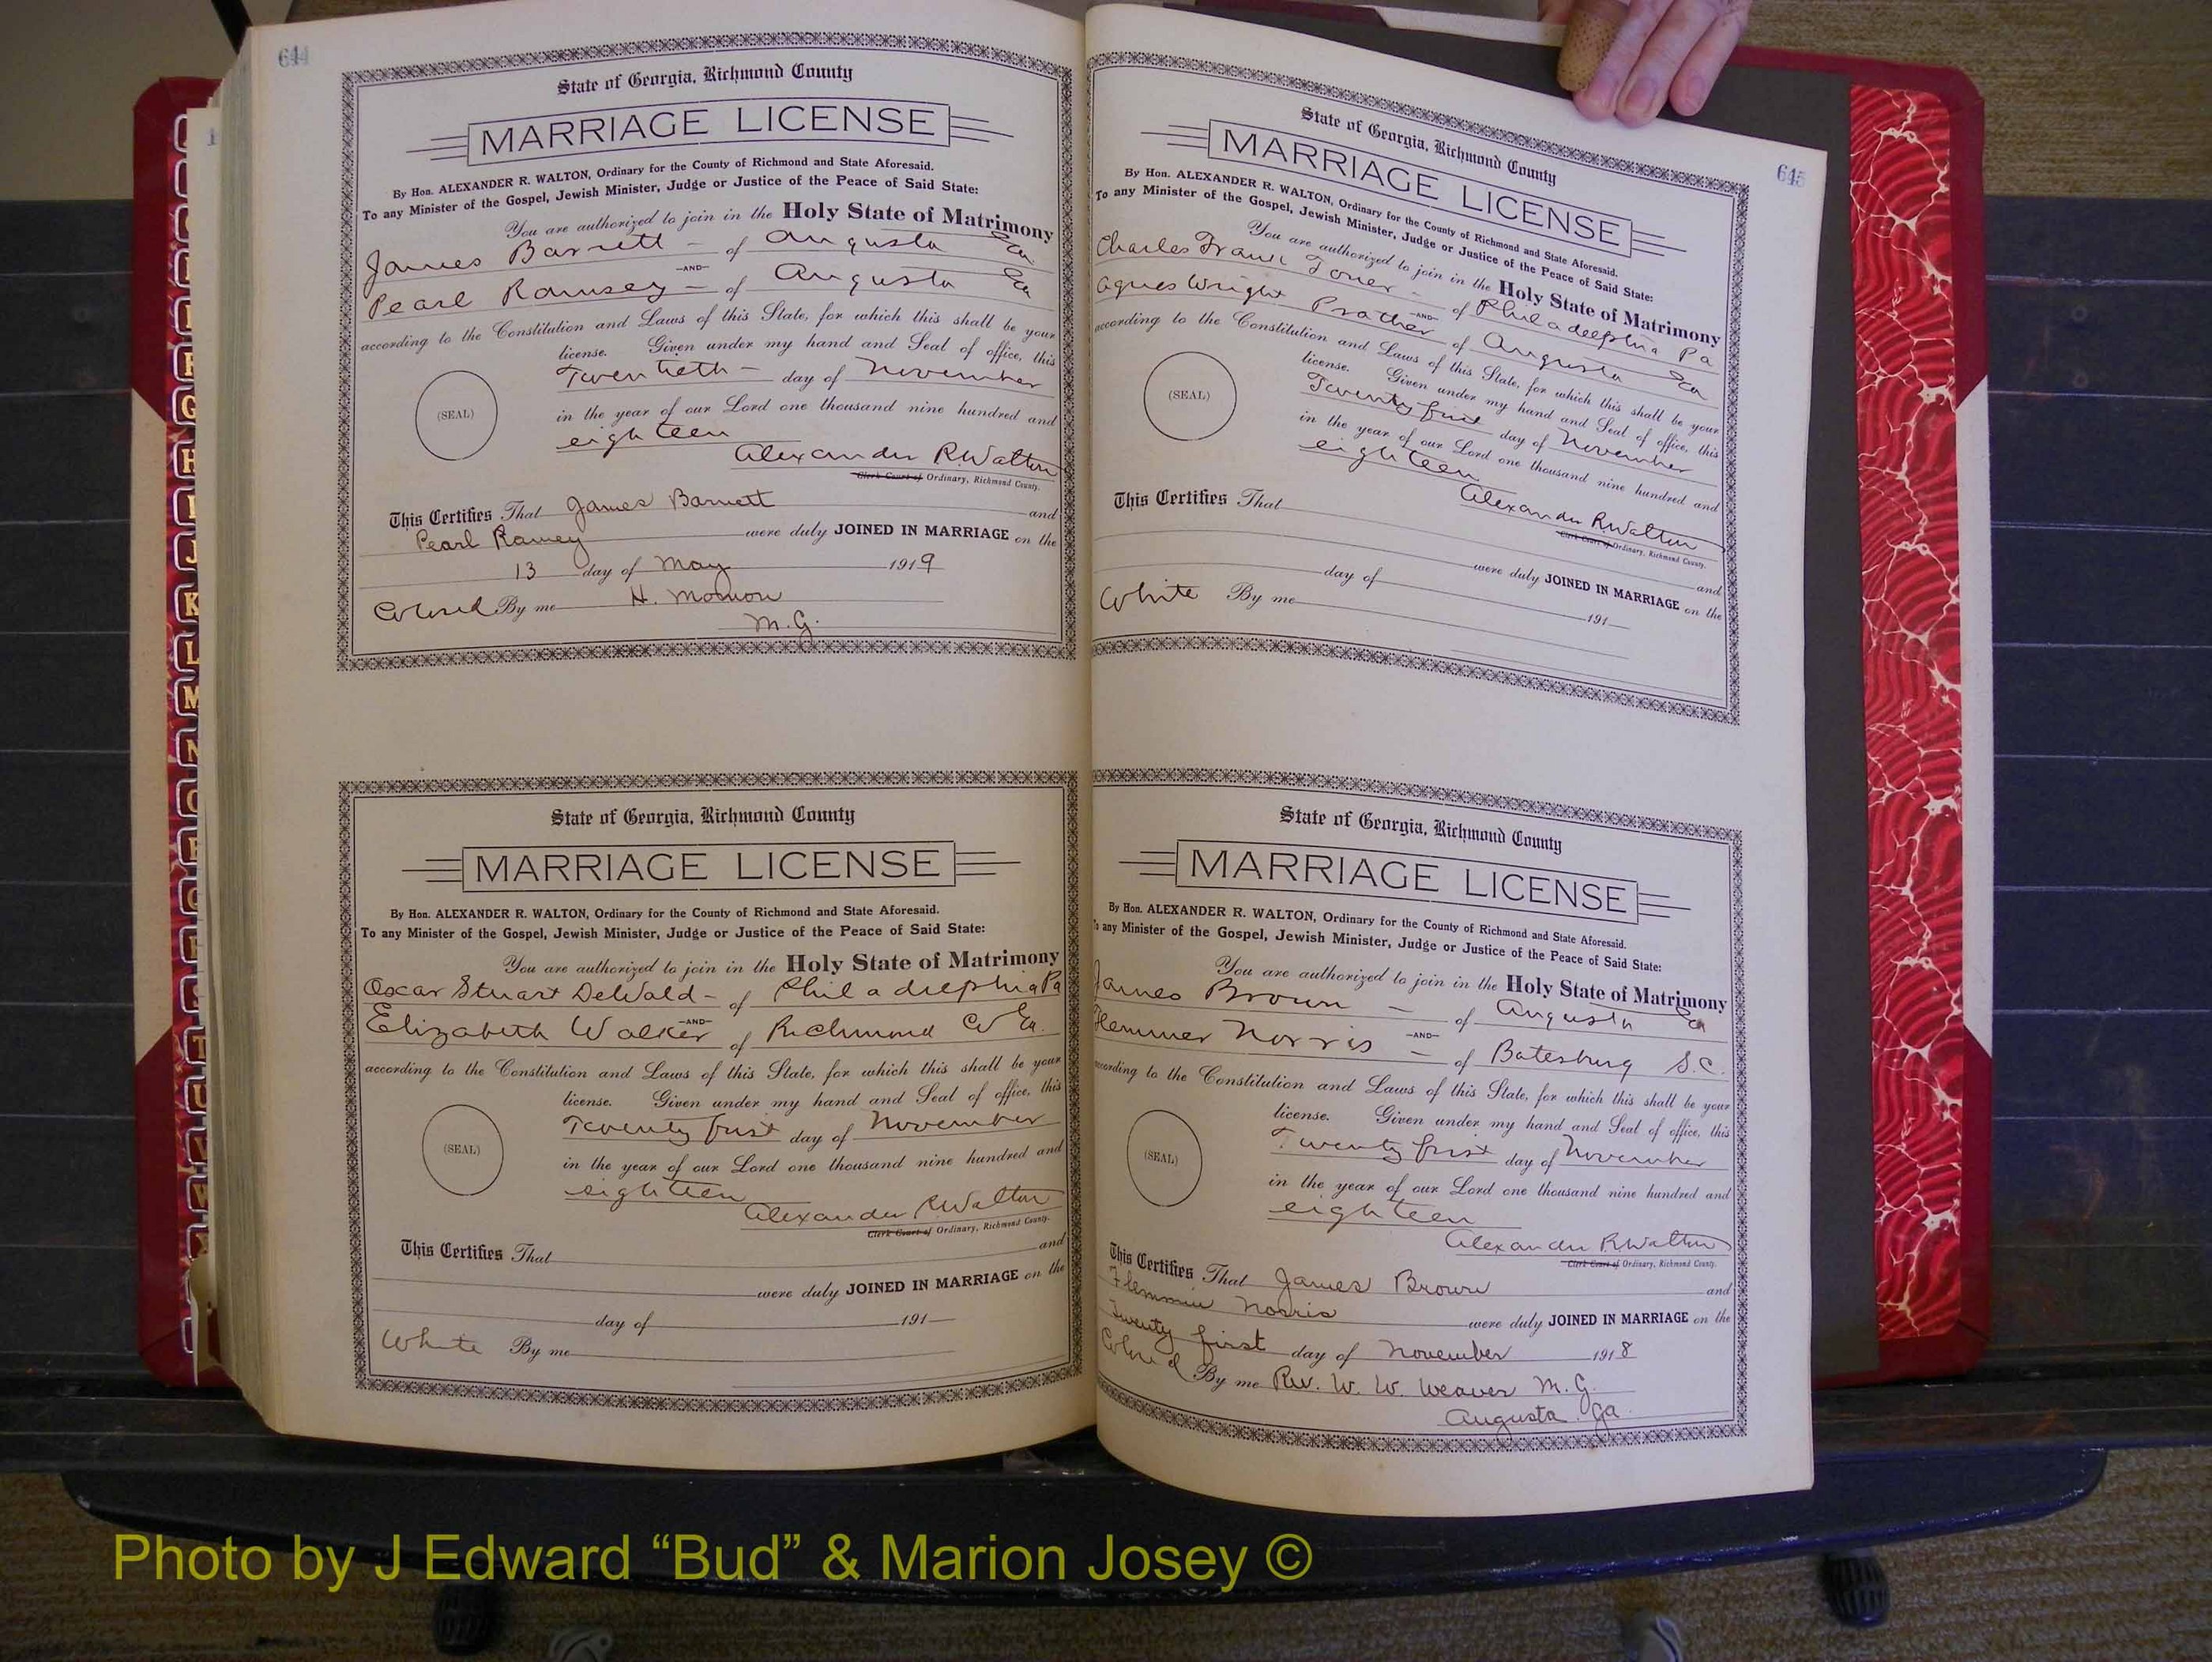 644
State of Georgia, Richmond County
MARRIAGE LICENSE
By Hon. ALEXANDER R. WALTON, Ordinary for the County of Richmond and State Aforesaid.
To any Minister of the Gospel, Jewish Minister, Judge or Justice of the Peace of Said State:
You are authorized to join in the Holy State of Matrimony
James Barrett - of Augusta Ga
-AND-
Pearl Ramsey - of Augusta Ga
according to the Constitution and Laws of this State, for which this shall be your
license. Given under my hand and Seal of office, this
Twentieth - day of November
(SEAL)
in the year of our Lord one thousand nine hundred and
eighteen
Alexander R. Walton
Clerk Court of Ordinary, Richmond County.
This Certifies That James Barnett and
Pearl Ramey were duly JOINED IN MARRIAGE on the
13 day of May 1919
Colored By me H.
M. G.
State of Georgia, Richmond County
MARRIAGE LICENSE
By Hon. ALEXANDER R. WALTON, Ordinary for the County of Richmond and State Aforesaid.
To any Minister of the Gospel, Jewish Minister, Judge or Justice of the Peace of Said State:
You are authorized to join in the Holy State of Matrimony
Oscar Stuart DeWald - of Philadelphia Pa
-AND-
Elizabeth Walker of Richmond Co Ga.
according to the Constitution and Laws of this State, for which this shall be your
license. Given under my hand and Seal of office, this
Twenty first day of November
(SEAL)
in the year of our Lord one thousand nine hundred and
eighteen
Alexander R Walton
Clerk Court of Ordinary, Richmond County.
This Certifies That and
were duly JOINED IN MARRIAGE on the
day of 191
White By me
645
State of Georgia, Richmond County
MARRIAGE LICENSE
By Hon. ALEXANDER R. WALTON, Ordinary for the County of Richmond and State Aforesaid.
To any Minister of the Gospel, Jewish Minister, Judge or Justice of the Peace of Said State:
You are authorized to join in the Holy State of Matrimony
Charles Frank Toner - of Philadelphia Pa
-AND-
Agnes Wright Prather of Augusta Ga
according to the Constitution and Laws of this State, for which this shall be your
license. Given under my hand and Seal of office, this
Twenty first day of November
(SEAL)
in the year of our Lord one thousand nine hundred and
eighteen
Alexander R Walton
Clerk Court of Ordinary, Richmond County.
This Certifies That and
were duly JOINED IN MARRIAGE on the
day of 191
White By me
State of Georgia, Richmond County
MARRIAGE LICENSE
By Hon. ALEXANDER R. WALTON, Ordinary for the County of Richmond and State Aforesaid.
To any Minister of the Gospel, Jewish Minister, Judge or Justice of the Peace of Said State:
You are authorized to join in the Holy State of Matrimony
James Brown - of Augusta Ga
-AND-
Flemmer Norris - of Batesburg S.C.
according to the Constitution and Laws of this State, for which this shall be your
license. Given under my hand and Seal of office, this
Twenty first day of November
(SEAL)
in the year of our Lord one thousand nine hundred and
eighteen
Alexander R Walton
Clerk Court of Ordinary, Richmond County.
This Certifies That James Brown and
Flemmin Norris were duly JOINED IN MARRIAGE on the
Twenty first day of November 1918
Colored By me Rev. W. W. Weaver M. G.
Augusta Ga
Photo by J Edward “Bud” & Marion Josey ©